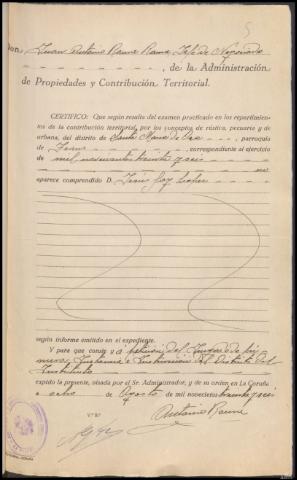 5
Don Juan Antonio Jefe de Negociado
de la Administración
de Propiedades y Contribución Territorial.
CERTIFICO: Que según resulta del examen practicado en los repartimien-
tos de la contribución territorial, por los conceptos de rústica, pecuaria y de
urbana, del distrito de Santa María de parroquia
de correspondiente al ejercicio
de mil novecientos treinta y seis
aparece comprendido D. López
según informe emitido en el expediente.
Y para que conste y a petición del Juzgado de pri
mera Instancia e Instrucción del Distrito del
Instituto
expido la presente, visada por el Sr. Administrador, y de su orden en La Coruña
a ocho de Agosto de mil novecientos treinta y seis
Antonio
V.º B.º